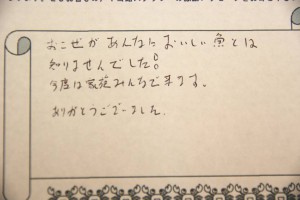 おこぜがあんなにおいしい魚とは
知りませんでした!!
今度は家族みんなで来ます。
ありがとうございました。